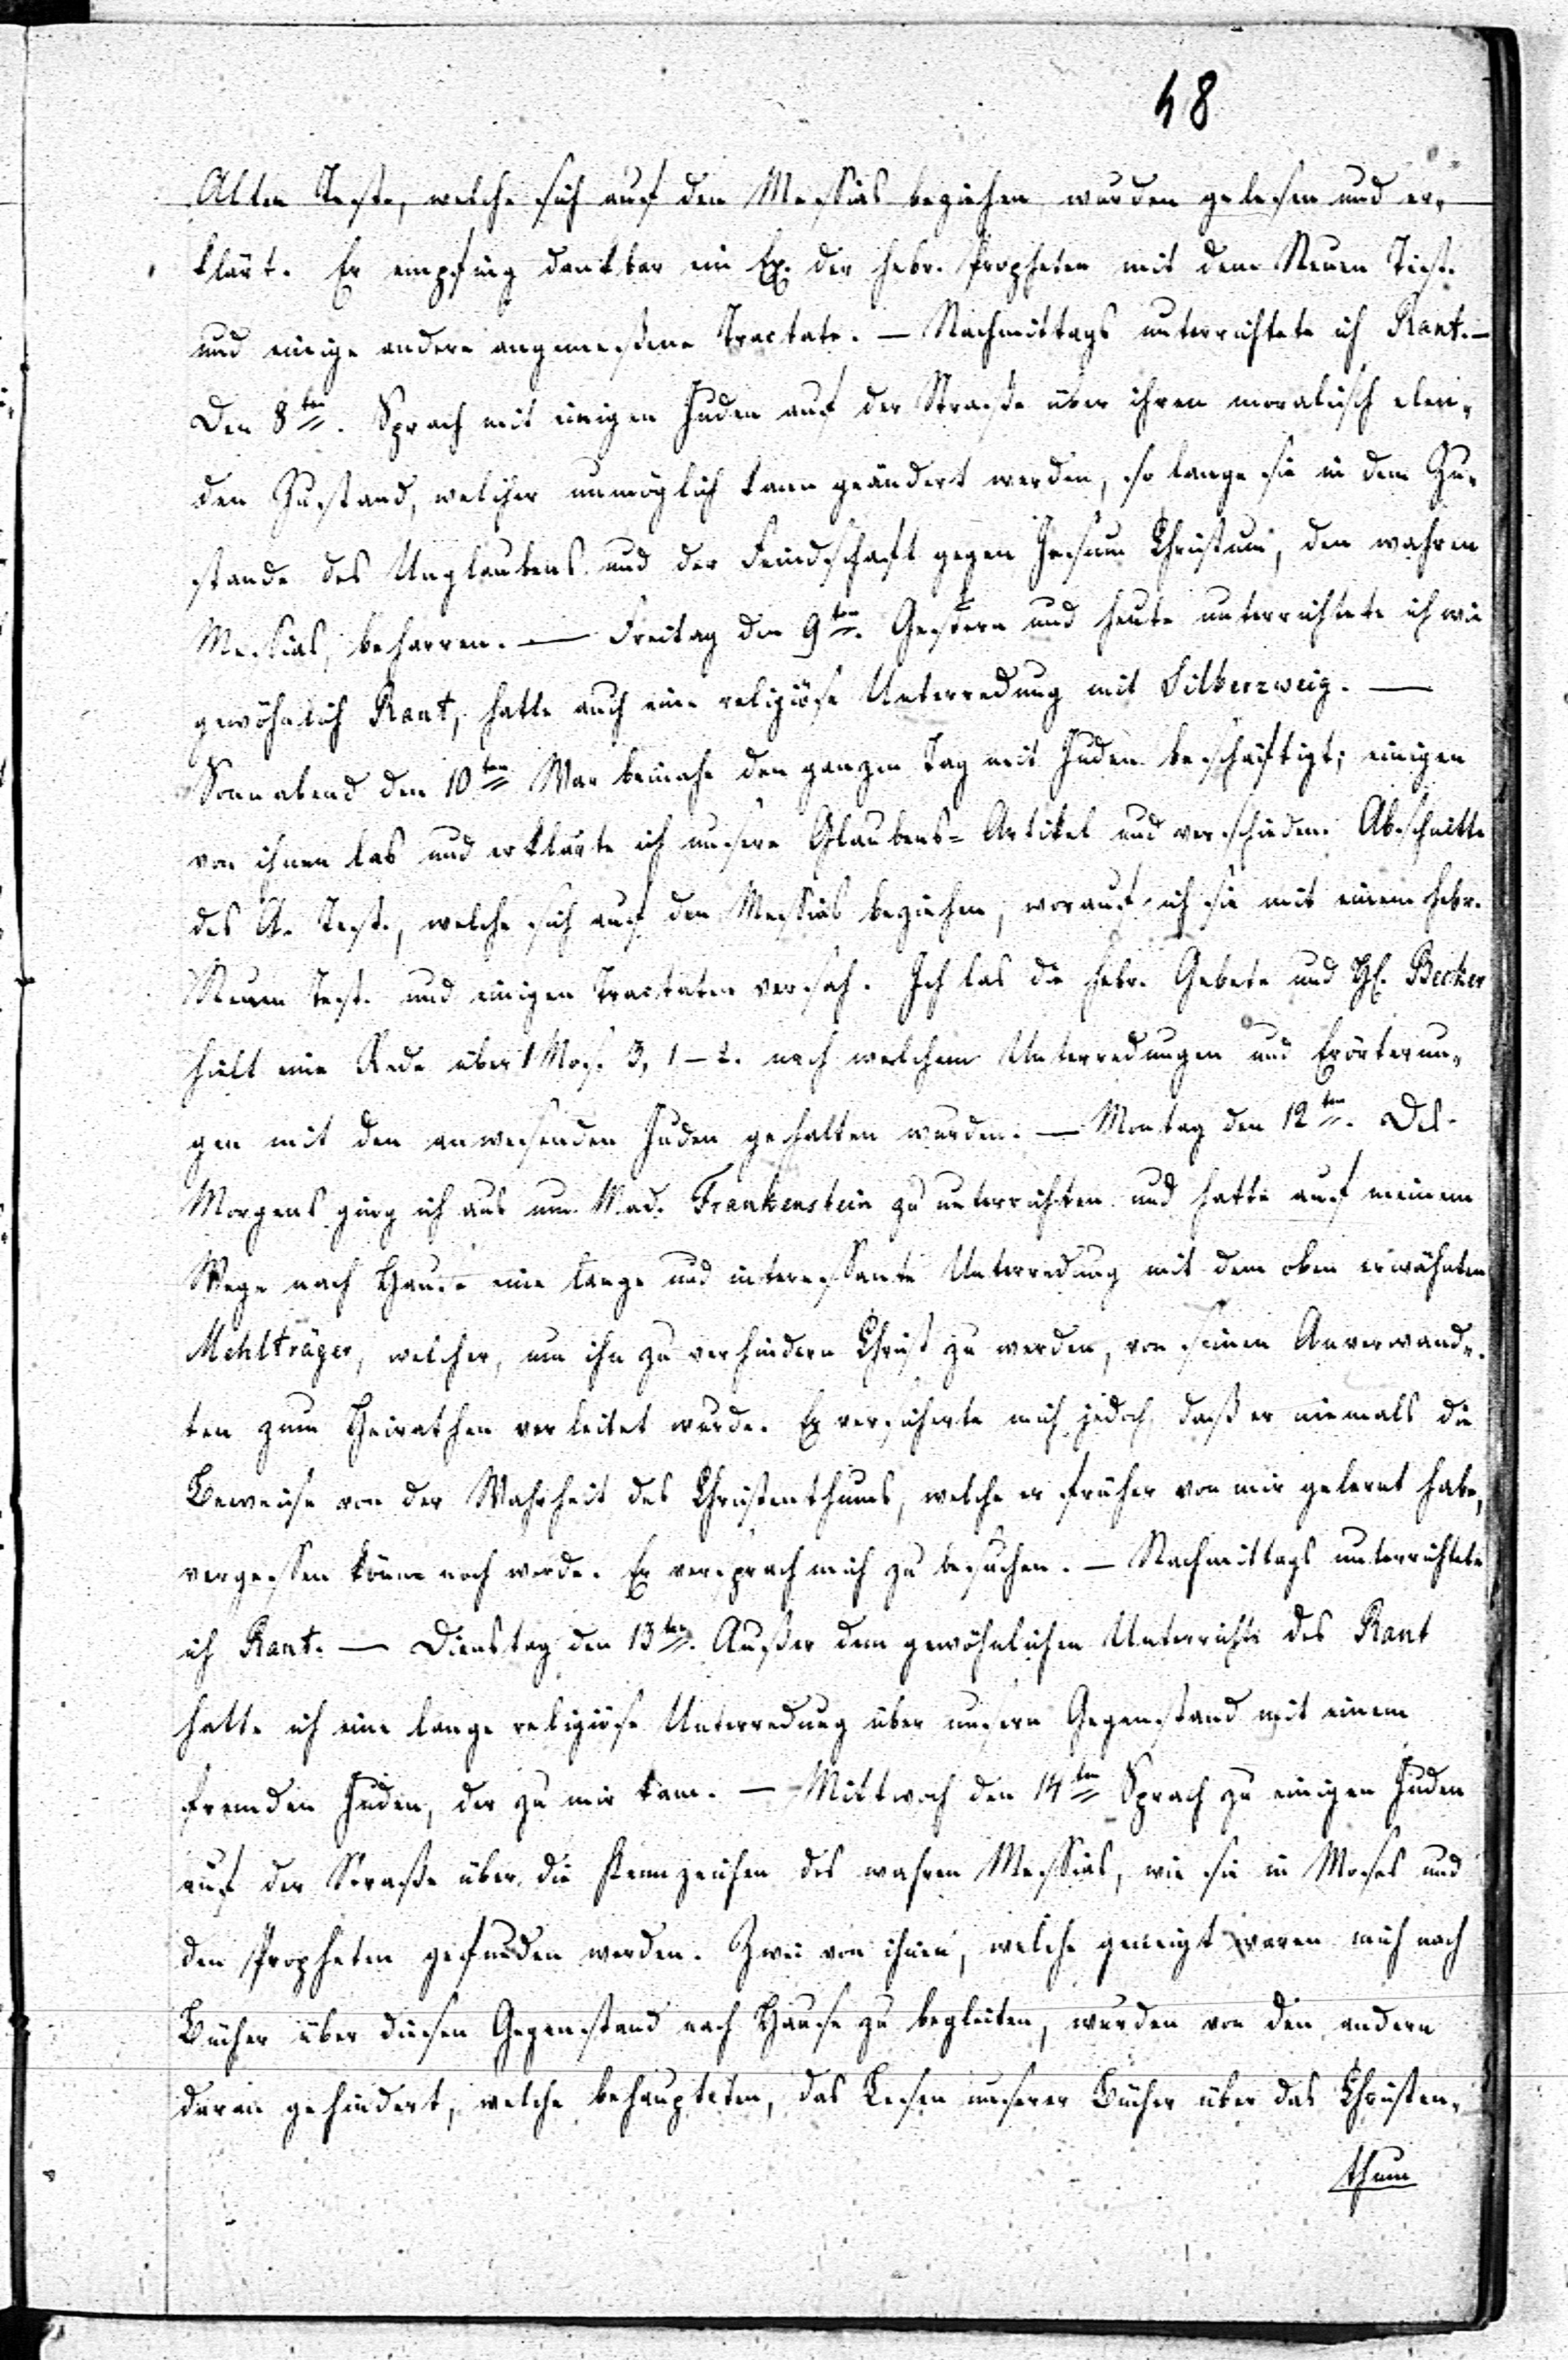 48
Alten Test., welche sich auf den Messias beziehen wurden gelesen und er-
klärt. Er empfing dankbar ein Ex. der hebr. Propheten mit dem Neuen Test.
und einige andere angemeßene Tractate. — Nachmittags unterrichtete ich Rant. —
Den 8ten. Sprach mit einigen Juden auf der Straße über ihren moralisch elen-
den Zustand, welcher unmöglich kann geändert werden, so lange sie in dem Zu-
stande des Unglaubens und der Feindschaft gegen Jesum Christum, den wahren
Messias, beharren. — Freitag den 9ten. Gestern und heute unterrichtete ich wie
gewöhnlich Rant, hatte auch eine religiöse Unterredung mit Silberzweig. —
Sonnabend den 10ten War beinahe den ganzen Tag mit Juden beschäftigt; einigen
von ihnen las und erklärte ich unsere Glaubens-Artikel und verschiedene Abschnitte
des A. Test., welche sich auf den Messias beziehen, worauf ich sie mit einem hebr.
Neuen Test. und einigen Tractaten versah. Ich las die hebr. Gebete und H. Becker
hielt eine Rede über 1 Mos. 3, 1-2. nach welchem Unterredungen und Erörterun-
gen mit den anwesenden Juden gehalten wurden. — Montag den 12ten. Des
Morgens ging ich aus um Mad. Frankenstein zu unterrichten und hatte auf meinem
Wege nach Hause eine lange und interessante Unterredung mit dem oben erwähnten
Mehlträger, welcher, um ihn zu verhindern Christ zu werden, von seinen Anverwand-
ten zum Heirathen verleitet wurde. Er versicherte mich jedoch, daß er niemals die
Beweise von der Wahrheit des Christenthums, welche er früher von mir gelernt habe,
vergessen könne noch werde. Er versprach mich zu besuchen. — Nachmittags unterrichtete
ich Rant. — Dienstag den 13ten. Außer dem gewöhnlichen Unterricht des Rant
hatte ich eine lange religiöse Unterredung über unsern Gegenstand mit einem
fremden Juden, der zu mir kam. — Mittwoch den 14ten Sprach zu einigen Juden
auf der Straße über die Kennzeichen des wahren Messias, wie sie in Moses und
den Propheten gefunden werden. Zwei von ihnen, welche geneigt waren mich nach
Bücher über diesen Gegenstand nach Hause zu begleiten, wurden von den andern
daran gehindert, welche behaupteten, das Lesen unserer Bücher über das Christen-
thum